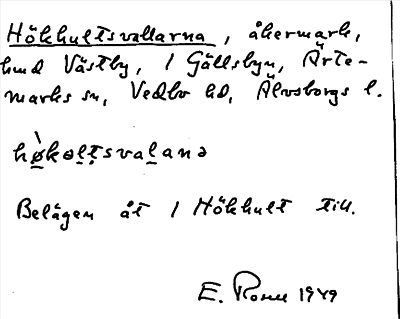 Hökhultsvallarna, åkermark,
hmd Västby, 1 Gällsbyn, Ärte-
marks sn, Vedbo hd, Älvsborgs l.
hø̀kəl̠t̠sval̠anə
Belägen åt 1 Hökhult till.
E. Rosell 1949